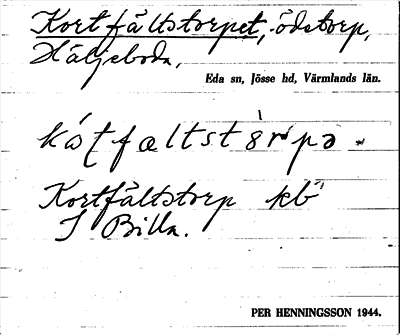 Kortfältstorpet, ödetorp,
Hälgeboda,
Eda sn, Jösse hd, Värmlands län.
Kortfältstorp kb
J Billa.
PER HENNINGSSON 1944.